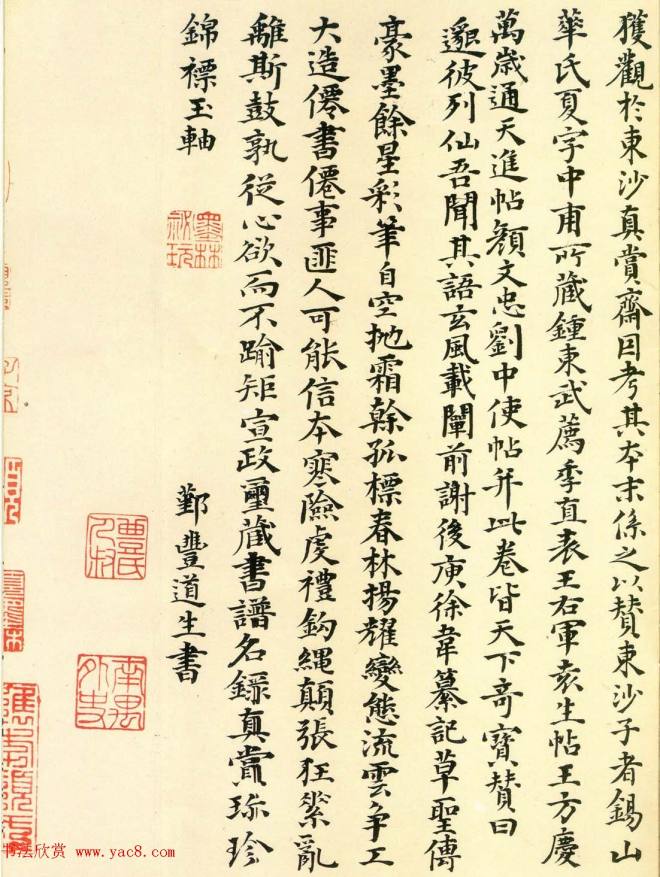 獲觀於東沙真賞齋因考其本末係之以贊東沙子者錫山
華氏夏字中甫所藏鍾東武薦季直表王右軍袁生帖王方慶
萬歲通天進帖顏文忠劉中使帖并此卷皆天下奇寶贊曰
邈彼列仙吾聞其語玄風載闡前謝後庾徐韋纂記草聖傳
豪墨餘星彩筆自空抛霜榦孤標春林揚耀變態流雲爭工
大造僊書僊事匪人可能信本寒險虔禮鈎繩顛張狂縈亂
離斯鼓孰從心欲而不踰矩宣政璽藏書譜名鏐真賞琢珍
錦褾玉軸
鄞豐道生書
墨林
祕玩
豐氏
人叔
南禺
外史
书法欣赏 www.yac8.com